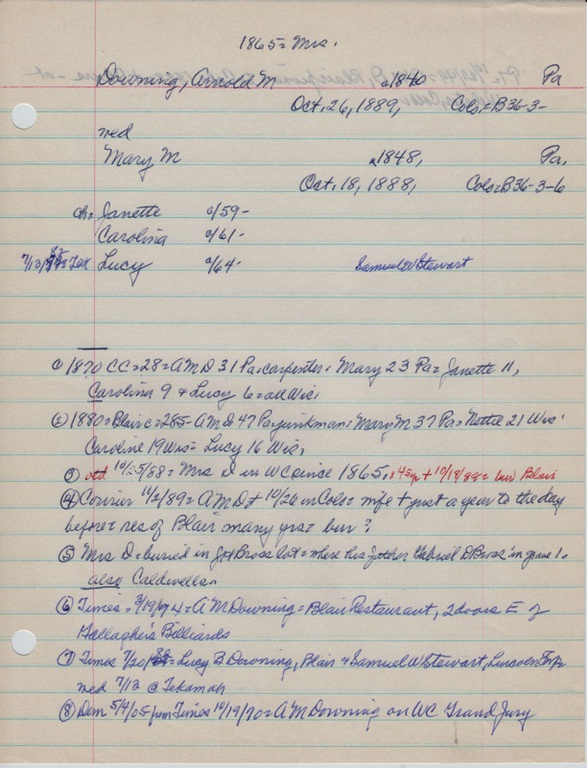 1865 = Mrs.
Downing, Arnold M c1840 Pa
Oct. 26, 1889, Cols = B36-3-
med
Mary M c1848, Pa.
Oct. 18, 1888, Cols = B36-3-6
ch = Janette c/59-
Carolina c/61-
7/13/ = Tek Lucy c/64- Samuel W Stewart
① 1870 CC = 28 = A M D 31 Pa. carpenter. Mary 23 Pa = Janette 11,
Carolina 9 & Lucy 6 = all Wis.
② 1880 = Blair c = 285 - A M D 47 Pa = junkman: Mary M 37 Pa = Nettie 21 Wis.
Caroline 19 Wis = Lucy 16 Wis.
③ 10/25/88 = Mrs D in WC since 1865. + 10/18/88 = bur Blair
④ Courier 11/2/89 = A M D + 10/26 in Cols = wife + just a year to the day
before = res of Blair many yrs = bur ?
⑤ Mrs D = buried in Bross lot = where his father Gabriel D Bross in grave 1.
also Caldwells
⑥ Times = 3/19/94 = A M Downing = Blair Restaurant, 2 doors E of
Gallagher's Billiards
⑦ Times 7/20/ = Lucy B Downing, Blair & Samuel W Stewart, Lincoln
med 7/13 @ Tekamah
⑧ Dem 5/4/05 from Times 10/19/70 = A M Downing on WC Grand Jury